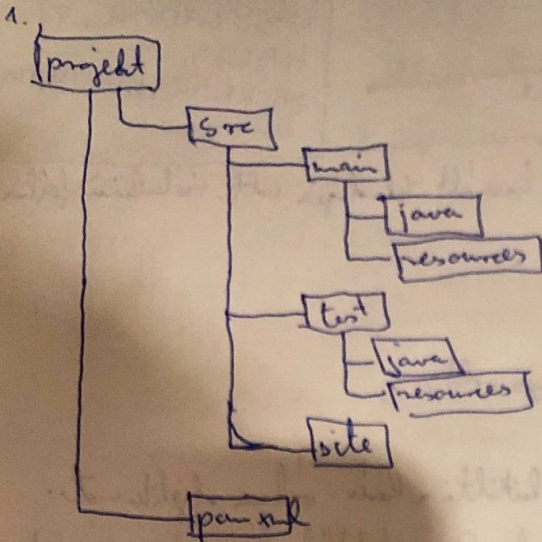 1.
projekt
src
main
java
resources
test
java
resources
site
pom xml